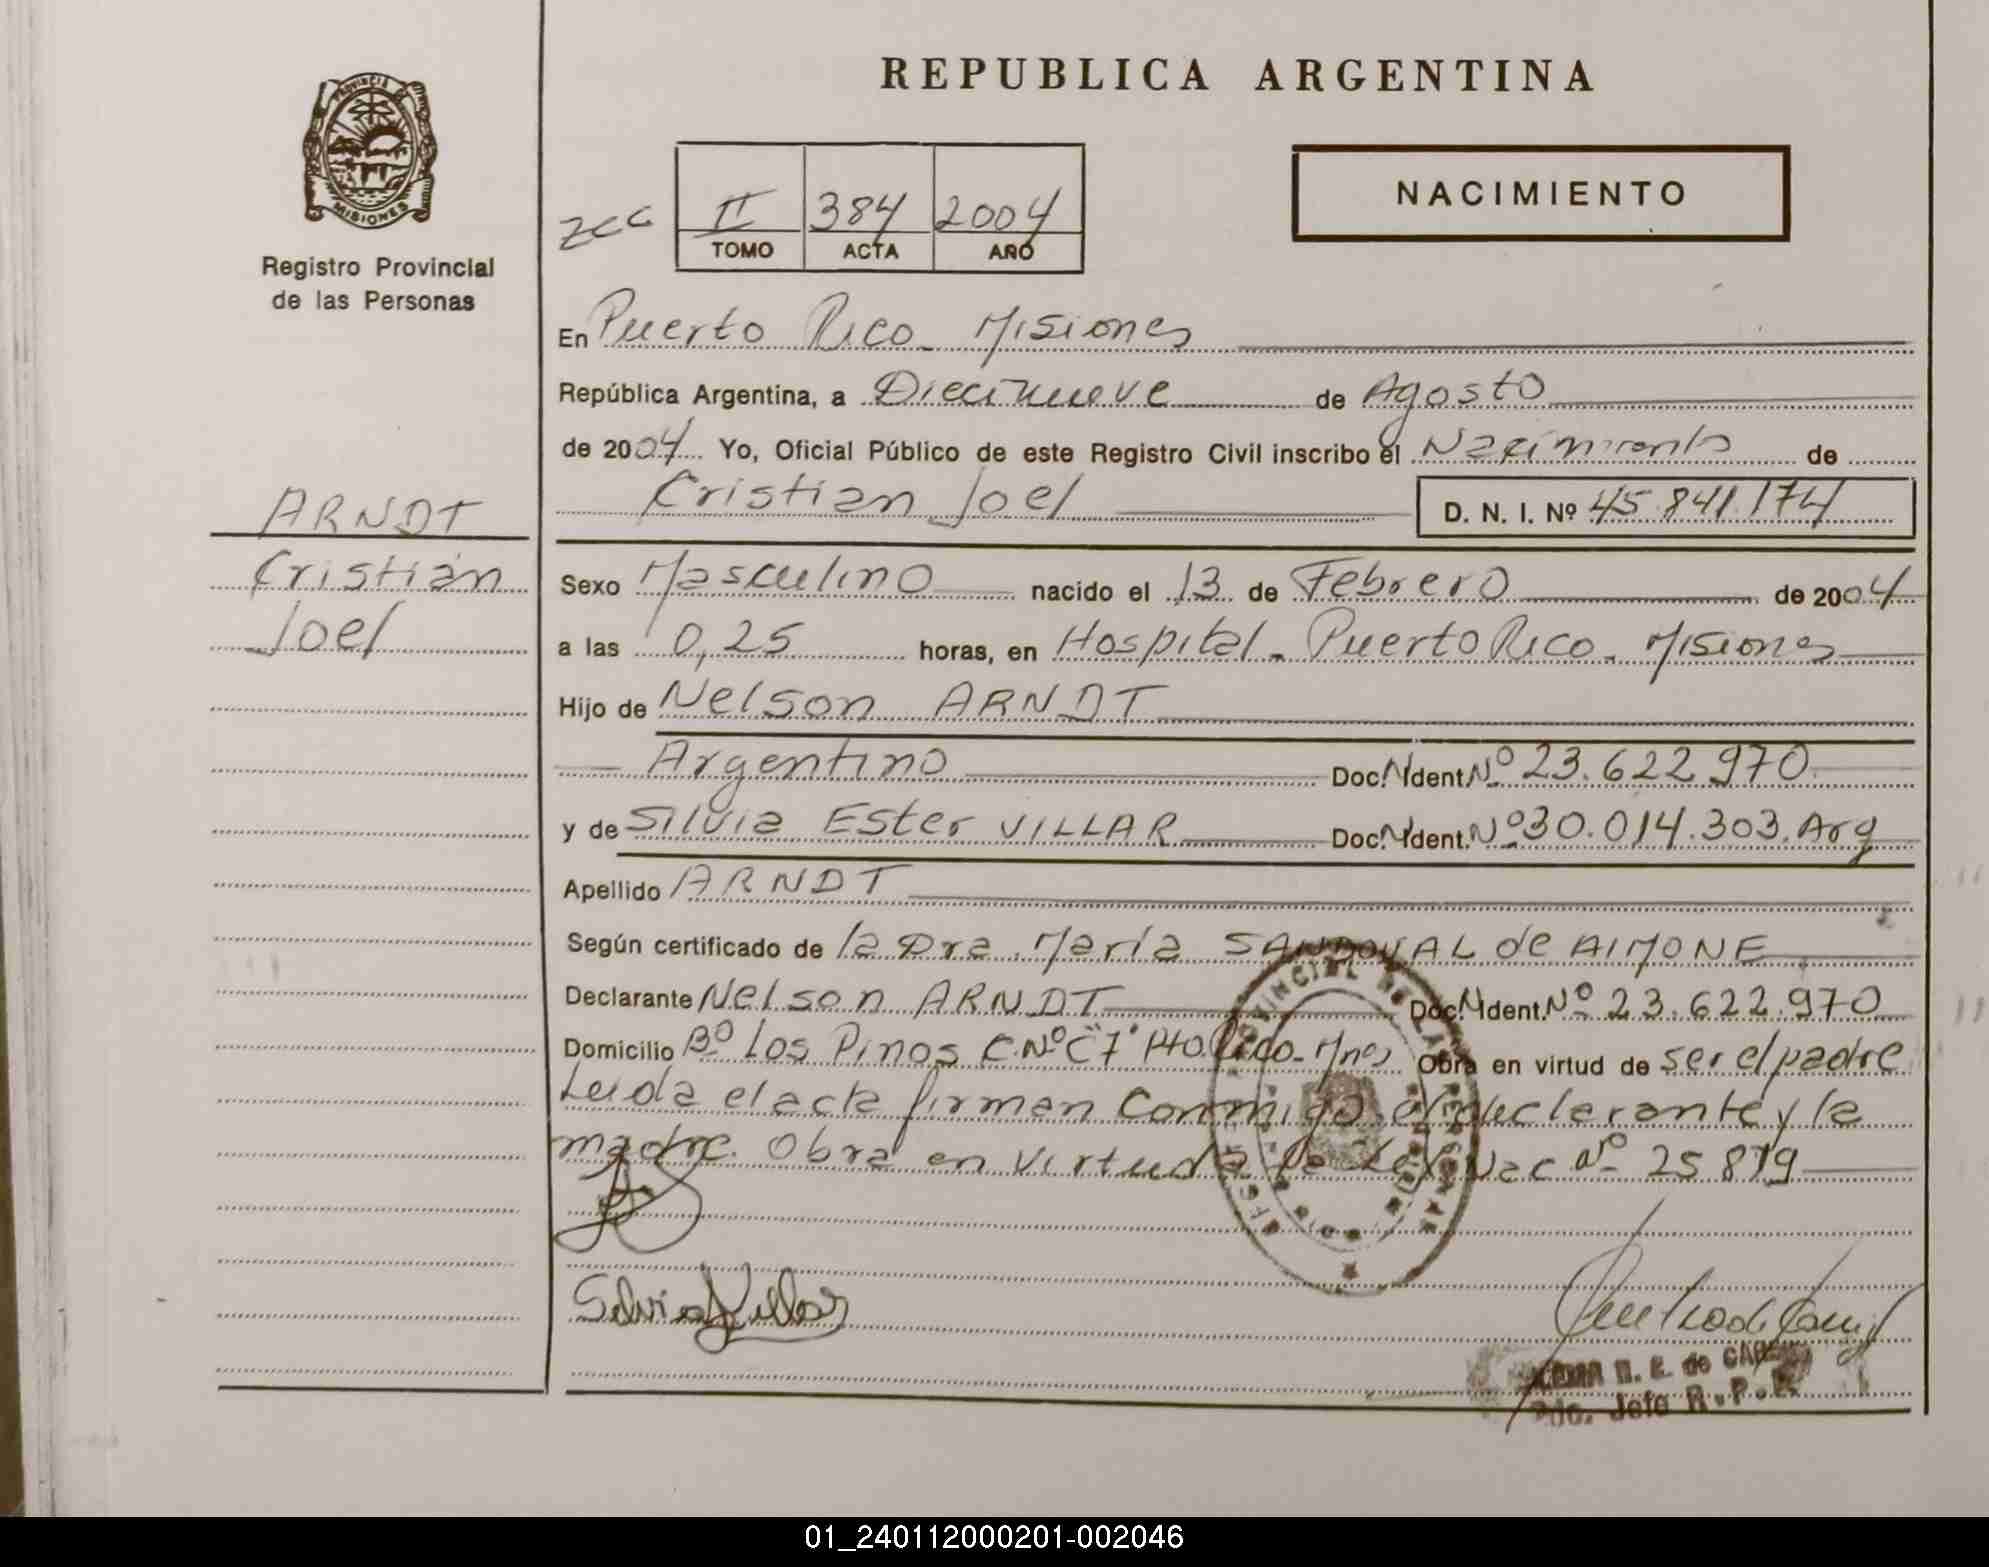 REPUBLICA ARGENTINA
PROVINCIA DE
MISIONES
Registro Provincial
de las Personas
NACIMIENTO
II 384 2004
TOMO ACTA AÑO
En Puerto Rico - Misiones
República Argentina, a Diecinueve de Agosto
de 2004 Yo, Oficial Público de este Registro Civil inscribo el Nacimiento de
Cristian Joel D. N. I. Nº 45.841.174
ARNDT
Cristian
Joel
Sexo Masculino nacido el 13 de Febrero de 2004
a las 0,25 horas, en Hospital - Puerto Rico - Misiones
Hijo de Nelson ARNDT
Argentino Doc. N Ident. Nº 23.622.970
y de Silvia Ester VILLAR Doc. N Ident. Nº 30.014.303. Arg
Apellido ARNDT
Según certificado de la Dra. María SANDOVAL de AIMONE
Declarante Nelson ARNDT Doc. N Ident. Nº 23.622.970
Domicilio Bº Los Pinos C. Nº "C7" Pto. Rico - Mnes Obra en virtud de ser el padre
Leida el acta firman conmigo el declarante y la
madre. Obra en virtud de la Ley Nac Nº 25.819
Silvia Villar
Jefe R.P.P.
01_240112000201-002046